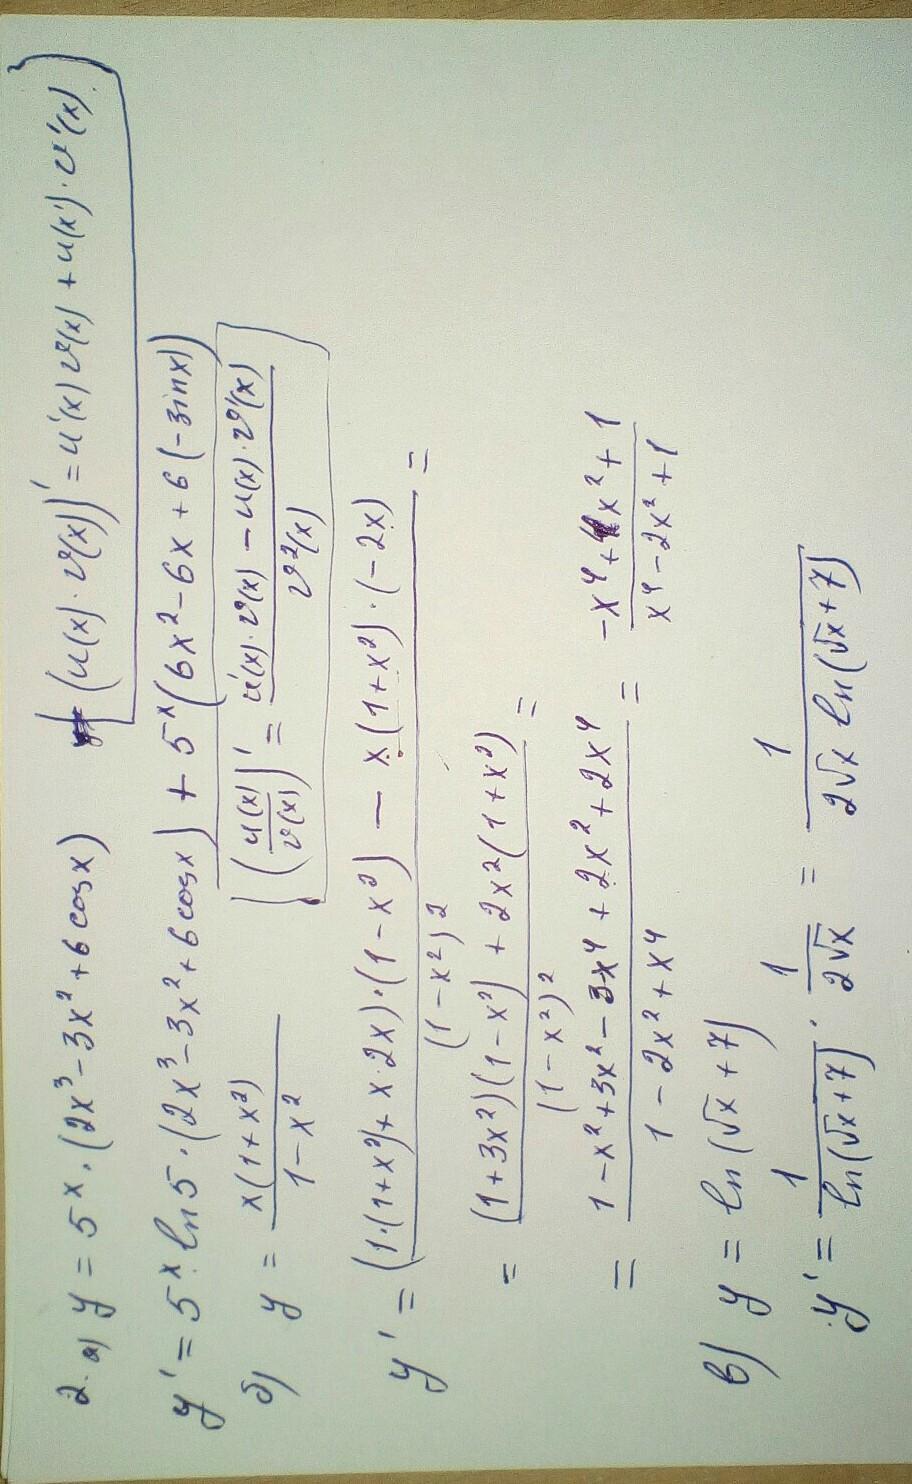 2. а) y = 5^x · (2x^3 − 3x^2 + 6 cosx) (u(x) · v(x))' = u'(x) v(x) + u(x) · v'(x)
y' = 5^x ln5 · (2x^3 − 3x^2 + 6 cosx) + 5^x (6x^2 − 6x + 6 (−sinx))
б) y = x(1+x^2) / 1−x^2 (u(x)/v(x))' = u'(x) · v(x) − u(x) · v'(x) / v^2(x)
y' = (1·(1+x^2) + x·2x) · (1−x^2) − x(1+x^2) · (−2x) / (1−x^2)^2 =
= (1+3x^2)(1−x^2) + 2x^2(1+x^2) / (1−x^2)^2 =
= 1−x^2+3x^2−3x^4+2x^2+2x^4 / 1−2x^2+x^4 = −x^4+4x^2+1 / x^4−2x^2+1
в) y = ln(√x+7)
y' = 1 / ln(√x+7) · 1 / 2√x = 1 / 2√x ln(√x+7)